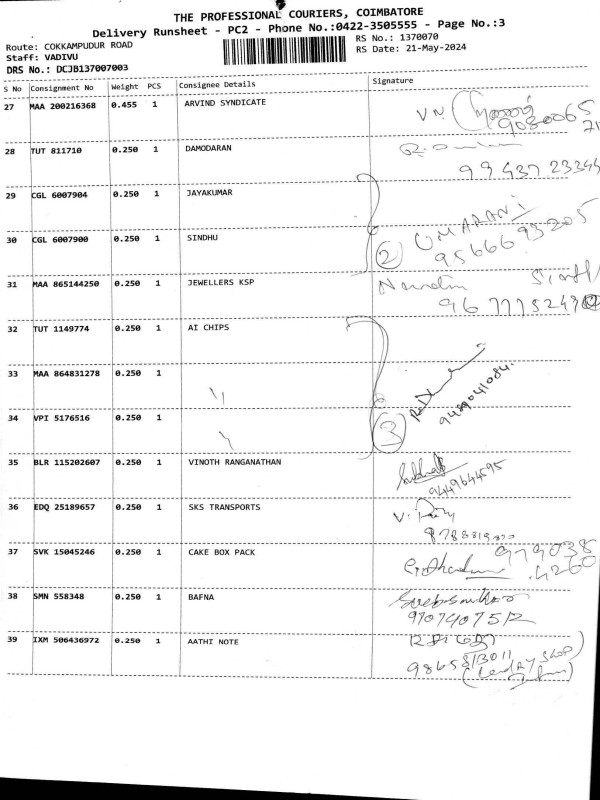 THE PROFESSIONAL COURIERS, COIMBATORE
Delivery Runsheet - PC2 - Phone No.:0422-3505555 - Page No.:3
Route: COKKAMPUDUR ROAD
RS No.: 1370070
Staff: VADIVU
RS Date: 21-May-2024
DRS No.: DCJB137007003
S No Consignment No Weight PCS Consignee Details Signature
27 MAA 200216368 0.455 1 ARVIND SYNDICATE
VN
28 TUT 811710 0.250 1 DAMODARAN
99437 23344
29 CGL 6007904 0.250 1 JAYAKUMAR
30 CGL 6007900 0.250 1 SINDHU
2 UMARANI
9566693205
31 MAA 865144250 0.250 1 JEWELLERS KSP
32 TUT 1149774 0.250 1 AI CHIPS
33 MAA 864831278 0.250 1 "
9489041084.
34 VPI 5176516 0.250 1 "
3
35 BLR 115202607 0.250 1 VINOTH RANGANATHAN
9449644595
36 EDQ 25189657 0.250 1 SKS TRANSPORTS
37 SVK 15045246 0.250 1 CAKE BOX PACK
979038
4260
38 SMN 558348 0.250 1 BAFNA
9707407512
39 IXM 506436972 0.250 1 AATHI NOTE